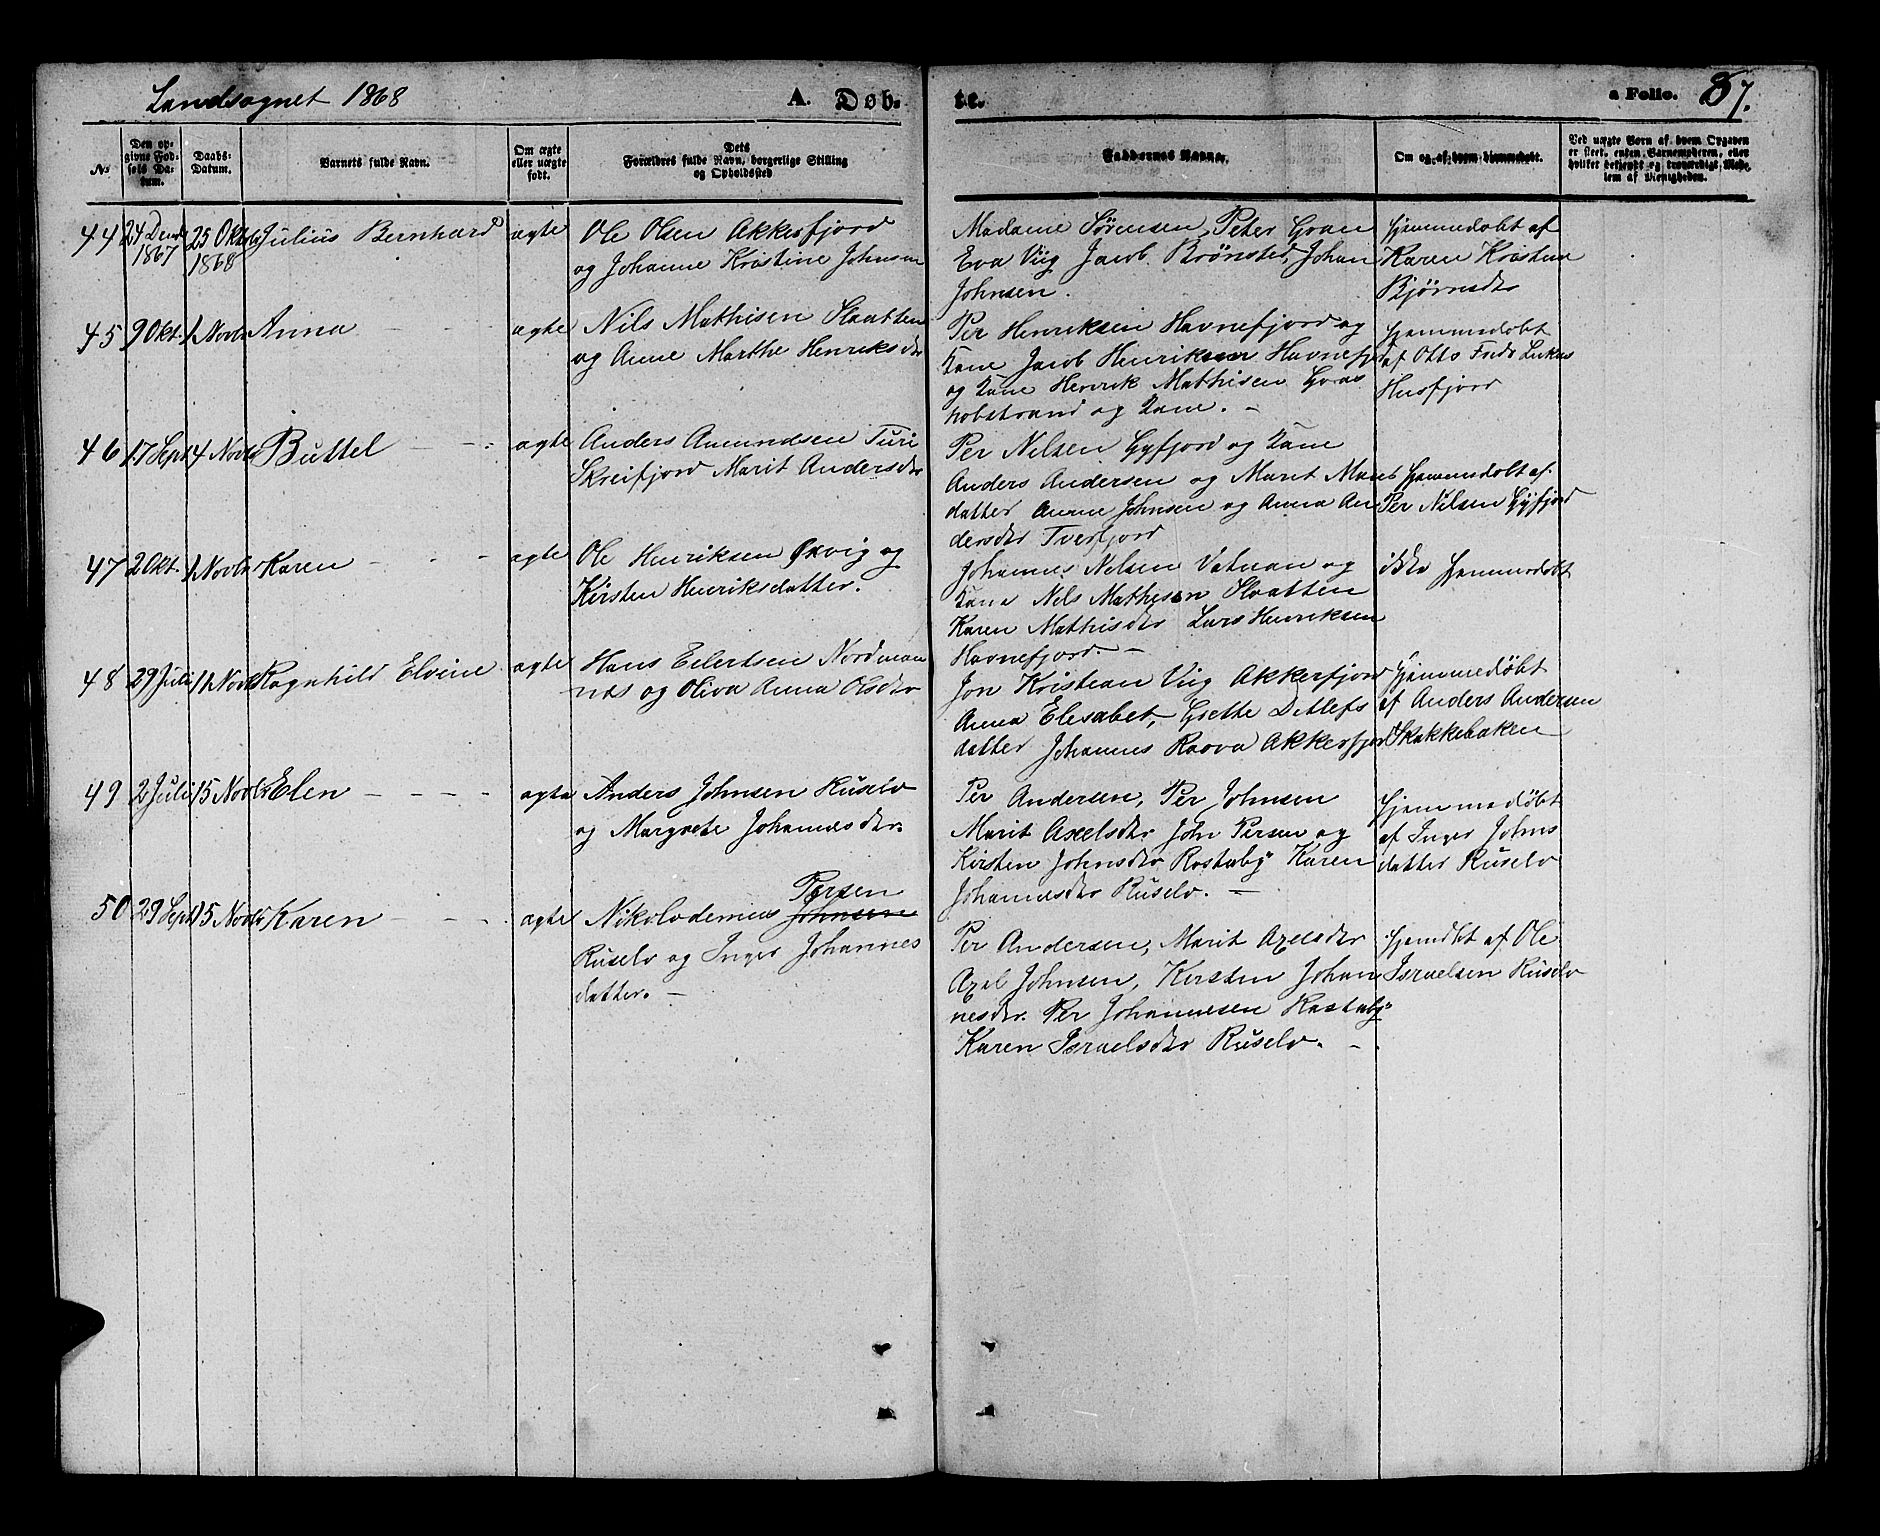 Landsognet 1868
A. Døb-
te.
a Folio. 87.
No
Den op-
givne Fød-
sels Da-
tum.
Daabs-
Datum.
Barnets fulde Navn.
Om ægte
eller uægte
født.
Dets
Forældres fulde Navn, borgerlige Stilling
og Opholdssted
Faddernes Navne.
Om og af hvem hjemmedøbt.
Ved uægte Børn af hvem Opgaven
er skeet, enten Barnemoderen, eller
hvilket betjent og troværdigt Med-
lem af Menigheden.
44
24 Decbr
1867
25 Oktbr
1868
Julius Bernhard
ægte
Ole Olsen Akkerfjord
og Johanne Kristine Johnsen
Madame Sørensen, Peter Gran
Eva Viig Jacob Brønsted, Johan
Johnsen.
Hjemmedøbt af
Karen Kristine
Bjørnsdtr
45
9 Okt.
1 Novbr
Anna
ægte
Nils Mathisen Slaatten
og Anne Marthe Henriksdtr
Per Henriksen Havnefjord og
Kone Jacob Henriksen Havnefjd
og Kone Henrik Mathisen
og Kone. —
Hjemmedøbt
af Otto Fredr Lukas
Husfjord
46
17 Sept
4 Novbr
Buttel
ægte
Anders Amundsen Turi
Skreifjord Marit Andersdtr
Per Nilsen Gyfjord og Kone
Anders Andersen og Marit Mons
datter Anne Johnsen og Anna An
dersdtr Tverfjord
Hjemmedøbt af
Per Nilsen Gyfjord
47
2 Okt.
1 Novbr
Karen
ægte
Ole Henriksen Øxvig og
Kirsten Henriksdatter.
Johannes Nelsen Vatnan og
Kone Nils Mathisen Slaatten
Karen Mathisdtr Lars Henriksen
Havnefjord. —
ikke Hjemmedøbt
48
29 Juli
11 Novbr
Ragnhild Elvine
ægte
Hans Eilertsen Nordman
næs og Oliva Anna Olsdtr
Jon Kristian Viig Akkerfjord
Anna Elesabet, Grethe Ditlefs
datter Johannes Raava Akkerfjord
Hjemmedøbt
af Anders Andersen
Skakkebaken
49
2 Juli
15 Novbr
Elen
ægte
Anders Johnsen Ruselv
og Margrete Johannesdtr.
Per Andersen, Per Johnsen
Marit Axelsdtr John Persen og
Kirsten Johnsdtr Rastabÿ Karen
Johannesdtr Ruselv. —
Hjemmedøbt
af Inger Johns
datter Ruselv
50
29 Sept
15 Novbr
Karen
ægte
Persen
Nikolodemus Johnsen
Ruselv og Inger Johannes
datter. —
Per Andersen, Marit Axelsdtr
Axel Johnsen, Kirsten Johan
nesdtr. Per Johannesen Rastabÿ
Karen Israelsdtr Ruselv. —
Hjemdbt af Ole
Israelsen Ruselv